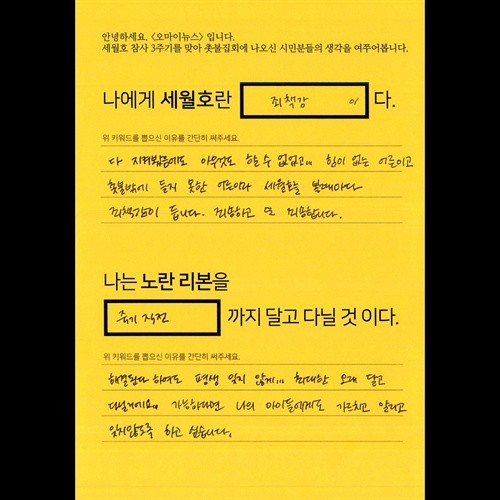 안녕하세요. <오마이뉴스> 입니다.
세월호 참사 3주기를 맞아 촛불집회에 나오신 시민분들의 생각을 여쭈어봅니다.
나에게 세월호란 죄책감 이 다.
위 키워드를 뽑으신 이유를 간단히 써주세요.
다 지켜봤음에도 아무것도 할 수 없었고,, 힘이 없는 어른이고
촛불밖에 들지 못한 어른이라 세월호를 볼때마다
죄책감이 듭니다. 죄송하고 또 죄송합니다.
나는 노란 리본을
죽기 직전 까지 달고 다닐 것 이다.
위 키워드를 뽑으신 이유를 간단히 써주세요.
해결된다 하여도 평생 잊지 않게,,, 최대한 오래 달고
다닐거에요. 가능하다면 나의 아이들에게도 가르치고 알리고
잊지않도록 하고 싶습니다.